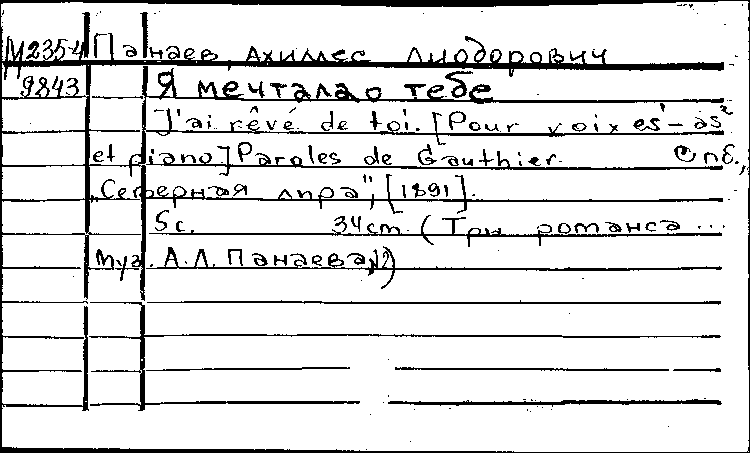 М235-4 Панаев, Ахиллес Лиодорович
9843 Я мечтала о тебе
J'ai rêvé de toi. [Pour voix es¹-as²
et piano] Paroles de Gauthier. Спб.,
"Северная лира", [1891].
5 с. 34cm. (Три романса ...
Муз. А.Л. Панаева, №2)